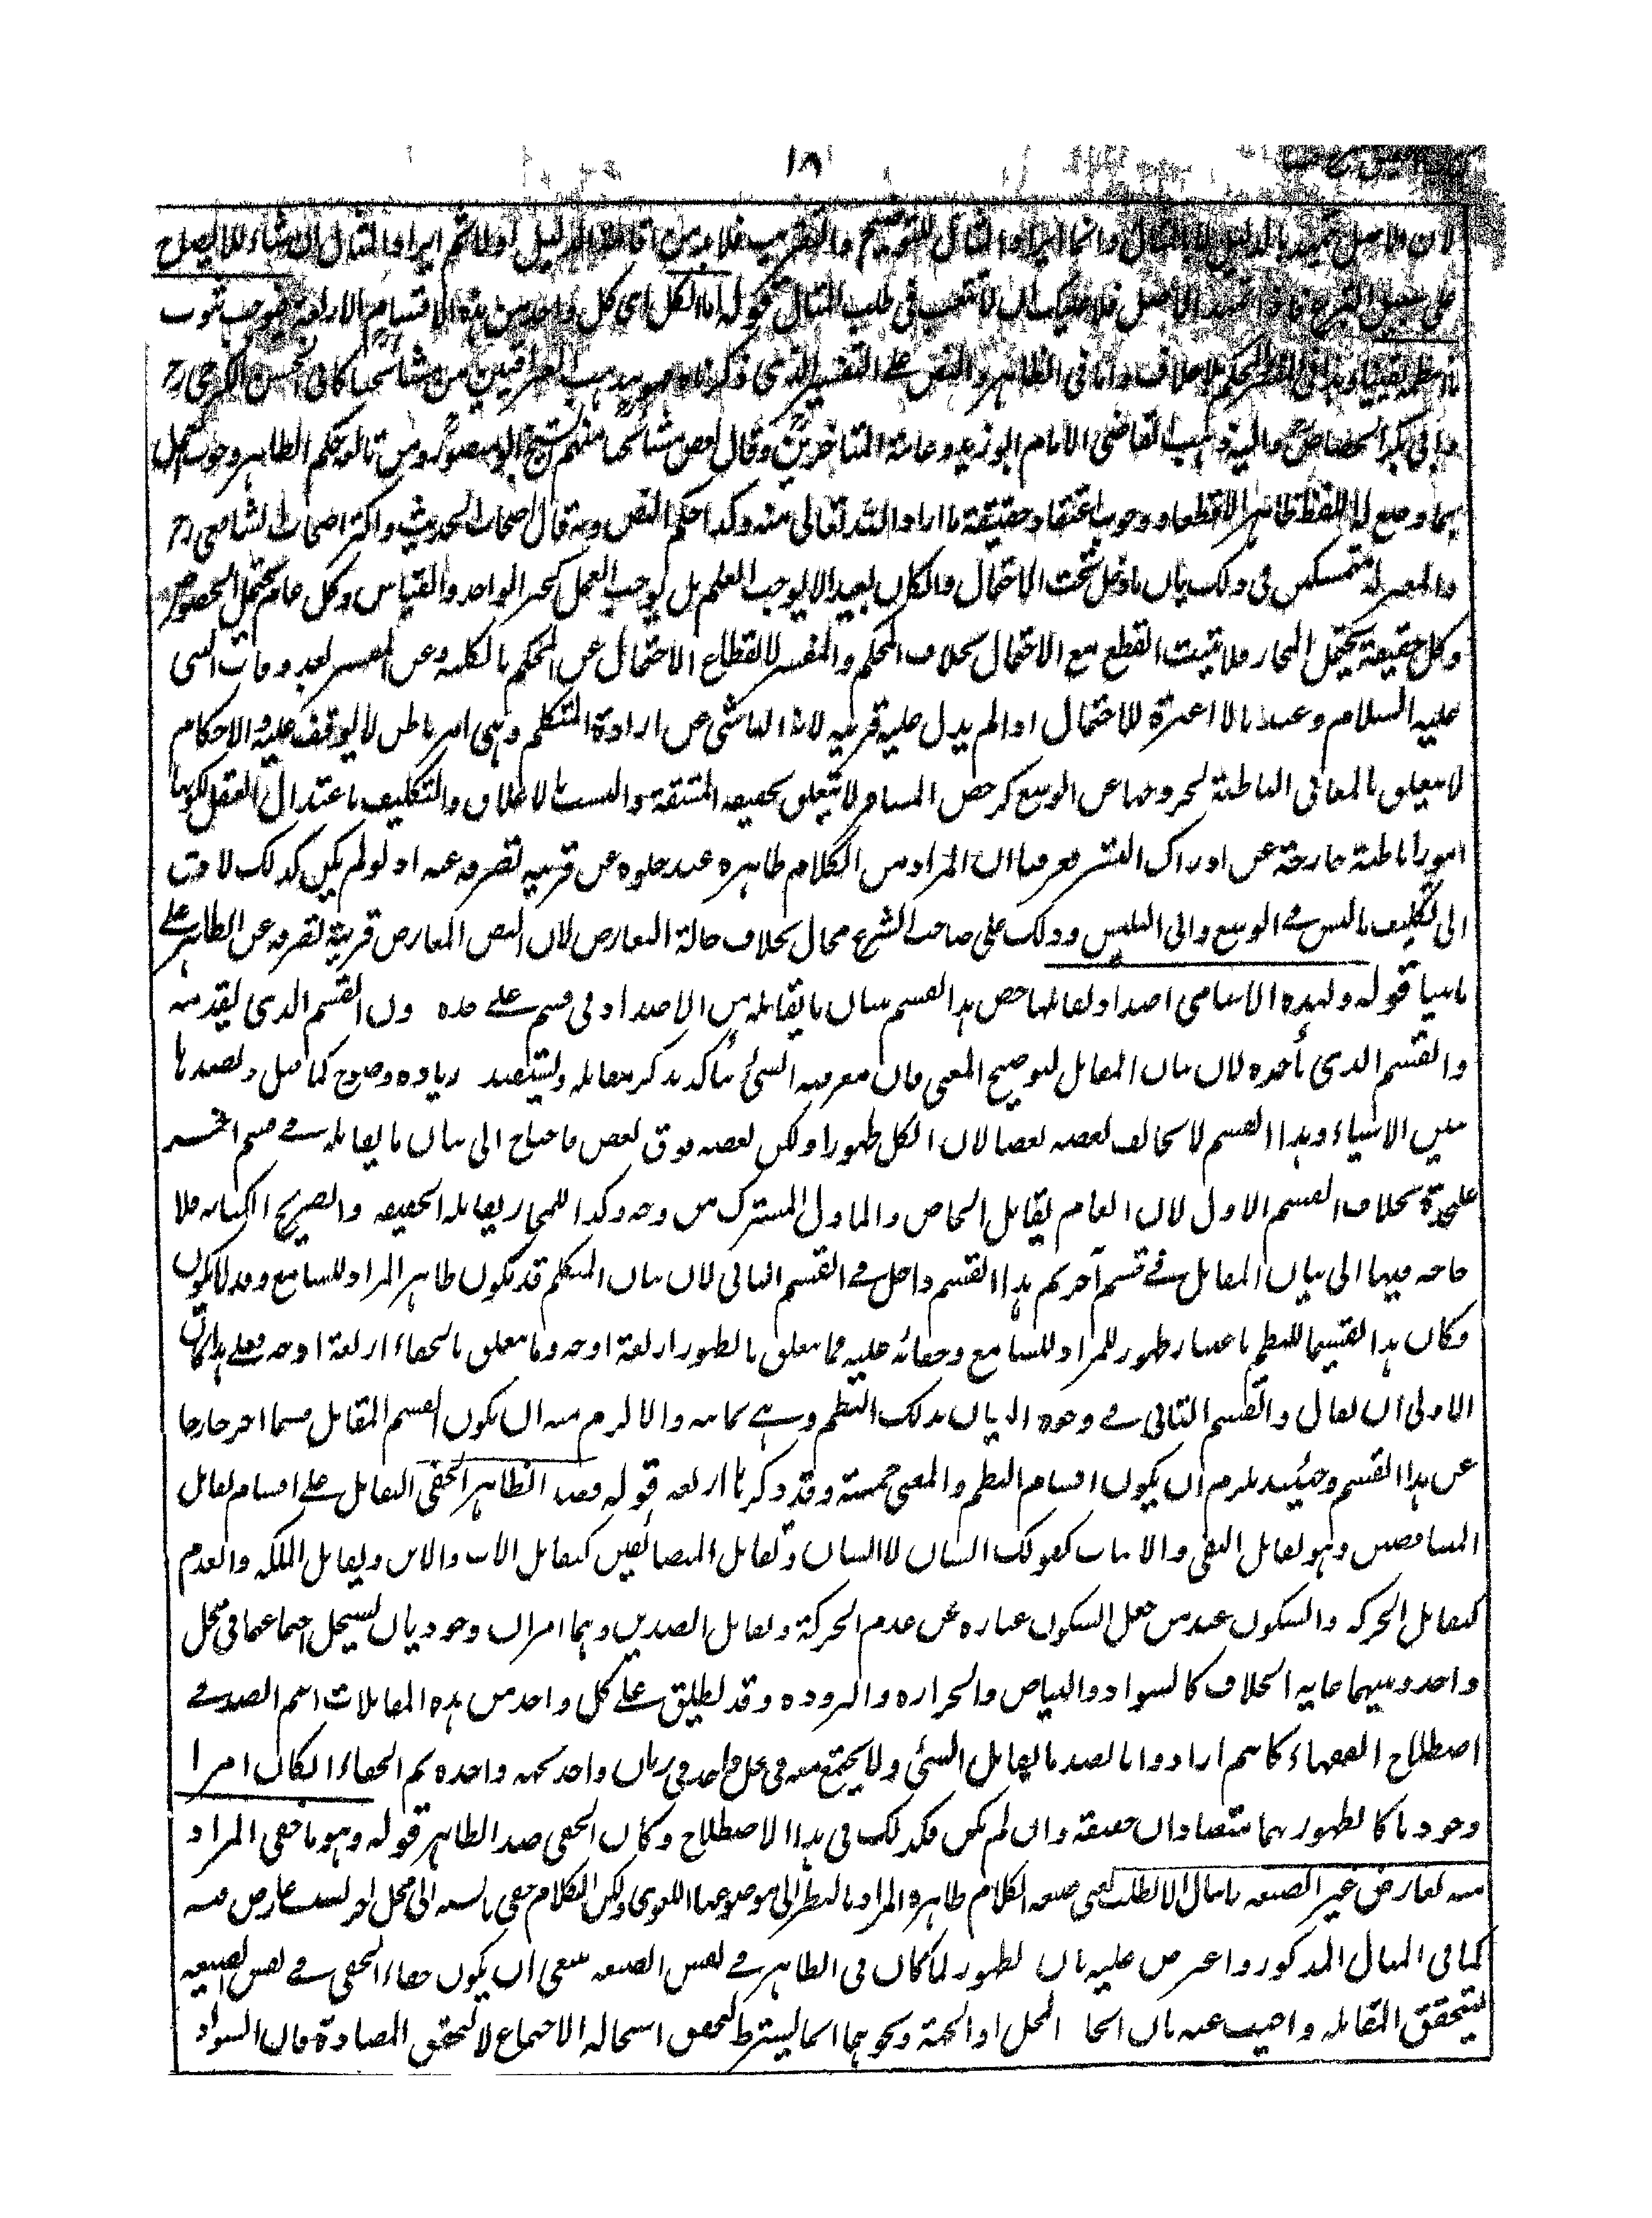 ١٨
لان الاصل تمهيد بالدليل لا بالمثال وانما ايراد المثال للتوضيح والتقريب فلا بد من اقامة الدليل اولا ثم ايراد المثال ان شاء للايضاح
على سبيل التبرع فاذا تمهد الاصل فلا عليك ان لا تتعب فى طلب المثال قوله اما الكل اى كل واحد من هذه الاقسام الاربعة فيوجب ثبوت
ما انتظمه يقينا وهذا فى المفسر والمحكم بلا خلاف واما فى الظاهر والنص على التفسير الذى ذكرناه فهو مذهب العراقيين من مشائخنا كابى الحسن الكرخى رح
وابى بكر الجصاص واليه ذهب القاضى الامام ابو زيد وعامة المتاخرين وقال بعض مشائخنا منهم الشيخ ابو منصور ومن تابعه حكم الظاهر وجوب العمل
بما وضع له اللفظ ظاهرا لا قطعا ووجوب اعتقاد حقيقة ما اراد الله تعالى منه وكذا حكم النص وبه قال اصحاب الحديث واكثر اصحاب الشافعى رح
والمعتزلة متمسكين فى ذلك بان ما دخل تحت الاحتمال وان كان بعيدا لا يوجب العلم بل يوجب العمل كخبر الواحد والقياس وكل عام يحتمل الخصوص
وكل حقيقة يحتمل المجاز فلا يثبت القطع مع الاحتمال بخلاف المحكم والمفسر لانقطاع الاحتمال عن المحكم بالكلية وعن المفسر بعد وفات النبى
عليه السلام وعندنا لا عبرة للاحتمال اذا لم يدل عليه قرينة لانه الناشى عن ارادة المتكلم وهى امر باطن لا يوقف عليه والاحكام
لا يتعلق بالمعانى الباطنة لخروجها عن الوسع كرخص المسافر لا يتعلق بحقيقة المشقة والنسب بالاعلاق والتكليف باعتدال العقل لكونها
امورا باطنة خارجة عن ادراك البشر فعرفنا ان المراد من الكلام ظاهره عند خلوه عن قرينة تصرفه عنه اذ لو لم يكن كذلك لادى
الى تكليف ما ليس فى الوسع والى التلبيس وذلك على صاحب الشرع محال بخلاف حالة التعارض لان النص المعارض قرينة تصرفه عن الظاهر على
ما بينا قوله ولهذه الاسامى اضداد تقابلها خص هذا القسم ببيان ما يقابله من الاضداد فى قسم على حدة دون القسم الذى تقدمه
والقسم الذى تأخره لان بيان المقابل لتوضيح المعنى فان معرفة الشئ يتأكد بذكر مقابله وليستفيد زيادة وضوح كما قيل وبضدها
تتبين الاشياء وهذا القسم لا يخالف بعضه بعضا لان الكل ظهورا ولكن بعضه فوق بعض فاحتاج الى بيان ما يقابله فى قسم آخر
علىحدة بخلاف القسم الاول لان العام يقابل الخاص والماول المشترك من وجه وكذا المجاز يقابله الحقيقة والصريح الكناية فلا
حاجة فيها الى بيان المقابل فى قسم آخر ثم هذا القسم داخل فى القسم الثانى لان بيان المتكلم قد يكون ظاهر المراد للسامع وقد لا يكون
فكان هذا تقسيما للنظم باعتبار ظهور المراد للسامع وخفائه عليه فما يتعلق بالظهور اربعة اوجه وما يتعلق بالخفاء اربعة اوجه فعلى هذا كان
الاولى ان يقال والقسم الثانى فى وجوه البيان بذلك النظم وهى ثمانية والا لزم منه ان يكون القسم المقابل قسما آخر خارجا
عن هذا القسم وحينئذ يلزم ان يكون اقسام النظم والمعنى خمسة وقد ذكرنا اربعة قوله فضد الظاهر الخفى التقابل على اقسام تقابل
المتناقضين وهو تقابل النفى والاثبات كقولك انسان لا انسان وتقابل المتضائفين كتقابل الاب والابن وتقابل الملكة والعدم
كتقابل الحركة والسكون عند من جعل السكون عبارة عن عدم الحركة وتقابل الضدين وهما امران وجوديان يستحيل اجتماعهما فى محل
واحد وبينهما غاية الخلاف كالسواد والبياض والحرارة والبرودة وقد يطلق على كل واحد من هذه المقابلات اسم الضد فى
اصطلاح الفقهاء كانهم ارادوا بالضد ما يقابل الشئ ولا يجتمع معه فى محل واحد فى زمان واحد بجهة واحدة ثم الخفاء ان كان امرا
وجوديا كالظهور فهما متضادان حقيقة وان لم يكن فكذلك فى هذا الاصطلاح وكان الخفى ضد الظاهر قوله وهو ما خفى المراد
منه بعارض غير الصيغة لا ينال الا بالطلب يعنى صيغة الكلام ظاهرة المراد بالنظر الى موضوعها اللغوى ولكن الكلام خفى بالنسبة الى محل آخر بسبب عارض فيه
كما فى المثال المذكور واعترض عليه بان الظهور لما كان فى الظاهر فى نفس الصيغة ينبغى ان يكون خفاء الخفى فى نفس الصيغة
ليتحقق المقابلة واجيب عنه بان اتحاد المحل او الجهة ونحوهما انما يشترط لتحقق استحالة الاجتماع لا لتحقق المضادة فان السواد